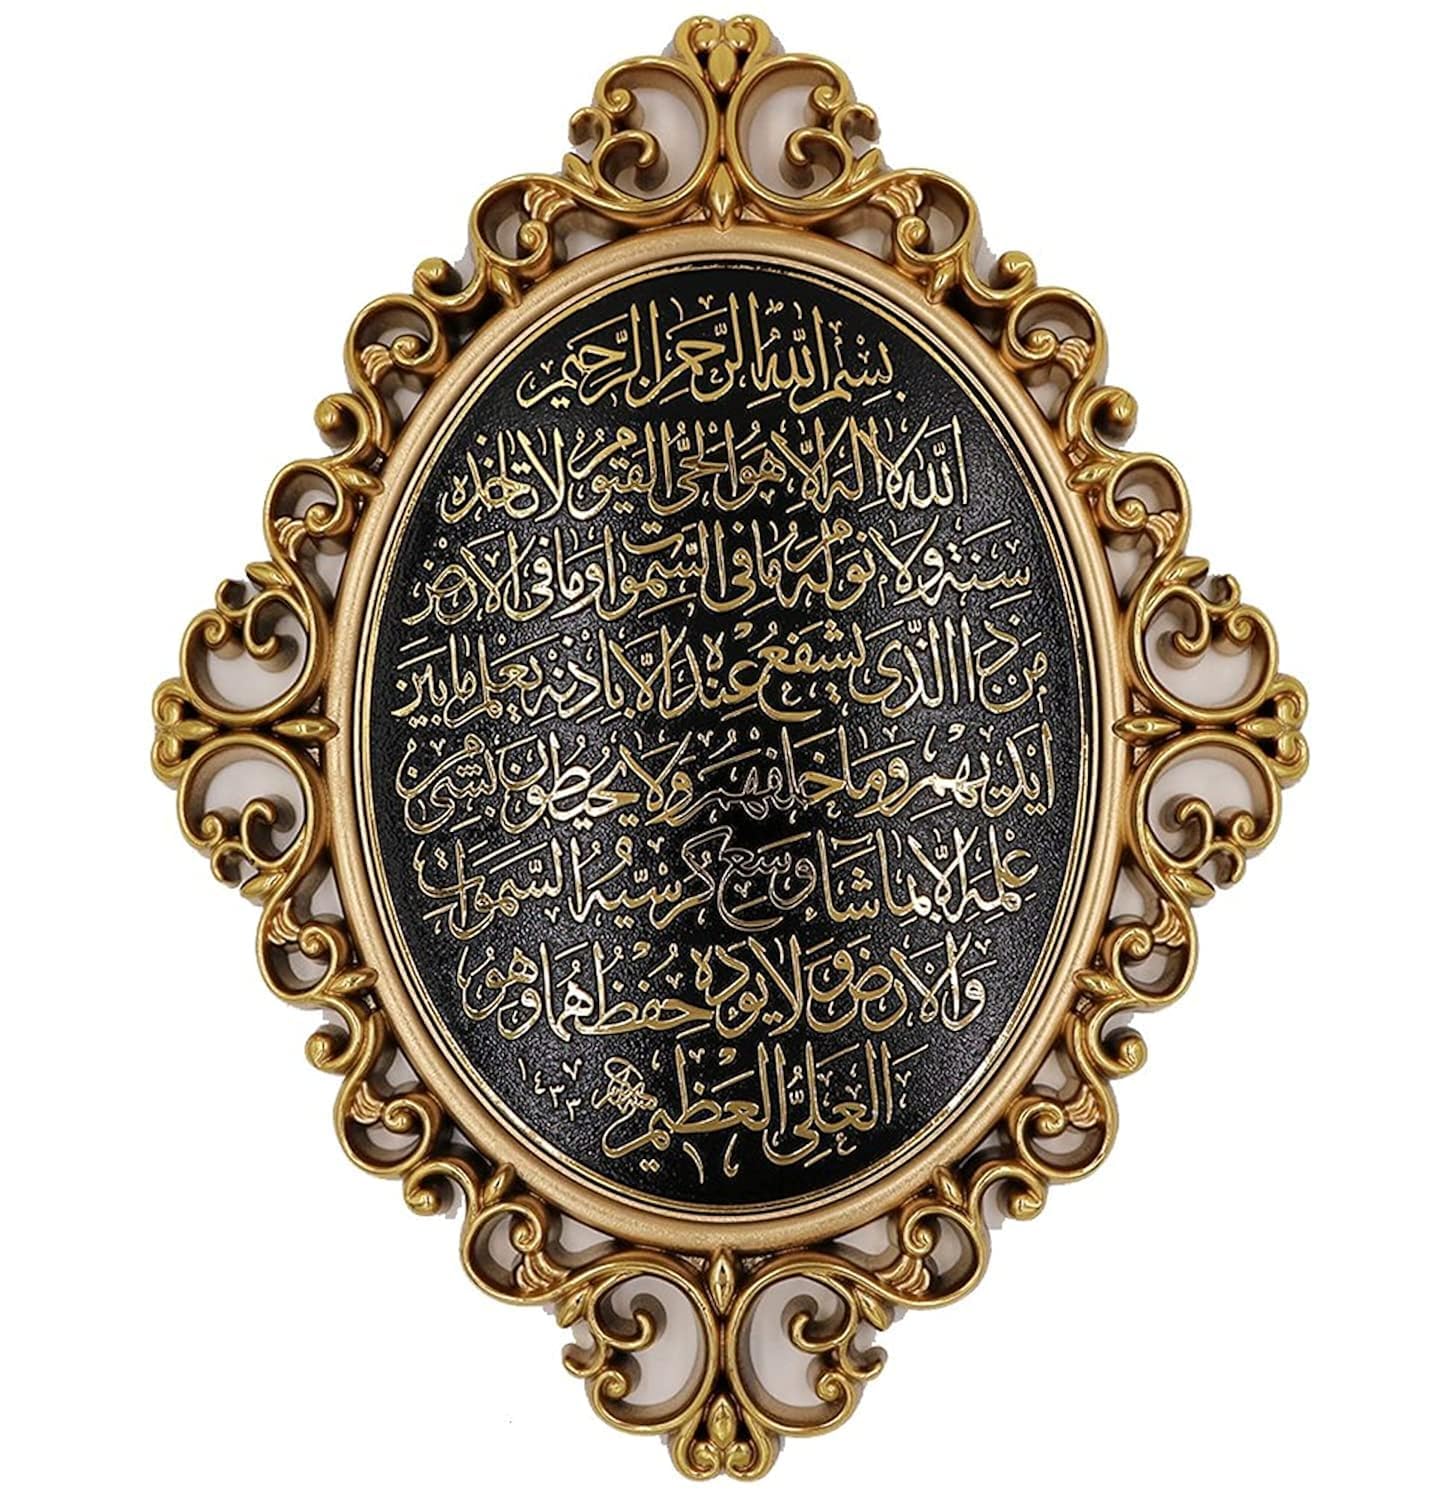 بسم الله الرحمن الرحيم
الله لا اله الا هو الحى القيوم لا تاخذه
سنة ولا نوم له ما فى السموات وما فى الارض
من ذا الذى يشفع عنده الا باذنه يعلم ما بين
ايديهم وما خلفهم ولا يحيطون بشئ من
علمه الا بما شاء وسع كرسيه السموات
والارض ولا يوده حفظهما وهو
العلى العظيم
١٤٣٣